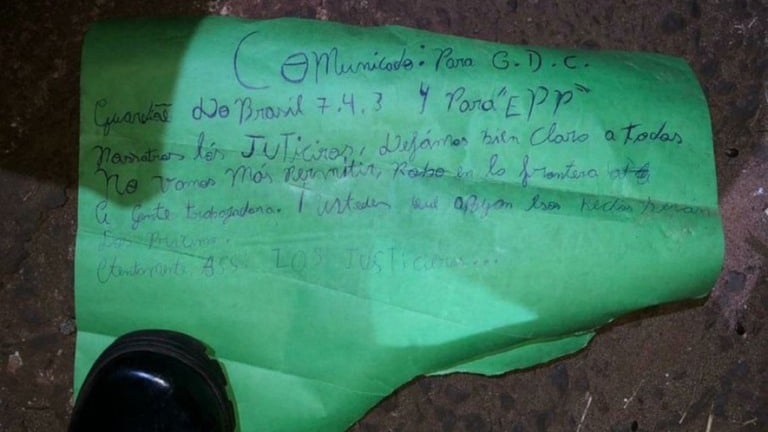 Comunicado: Para G.D.C.
Guardiãe Do Brasil 7.4.3 Y Para "EPP"
Nosotros lós JUTiciros, Dejámos bien Claro a todas
No vamos Más Permitir, Robo en la frontera
a Gente trabajadora. Y ustedes que apoyan esos hechos serán
Los Proximo.
Atentamente ASS: LOS JUSTicieros...